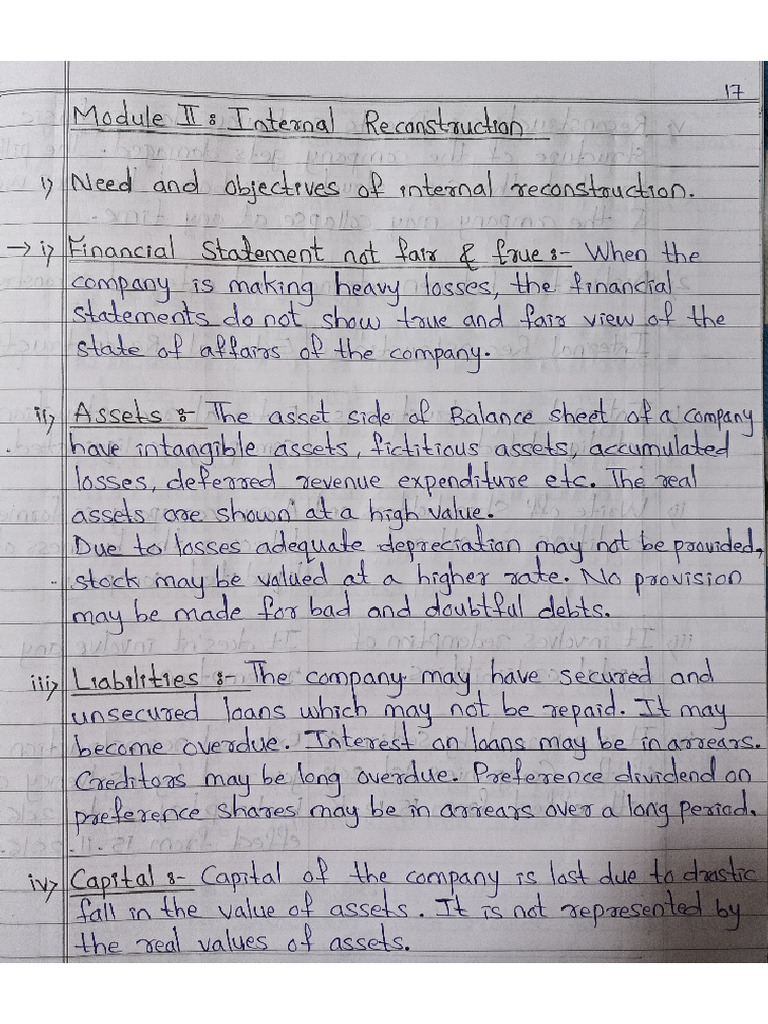 17
Module II : Internal Reconstruction
1) Need and objectives of internal reconstruction.
→ i) Financial Statement not fair & true :- When the
company is making heavy losses, the financial
statements do not show true and fair view of the
state of affairs of the company.
ii) Assets :- The asset side of Balance sheet of a company
have intangible assets, fictitious assets, accumulated
losses, deferred revenue expenditure etc. The real
assets are shown at a high value.
Due to losses adequate depreciation may not be provided,
stock may be valued at a higher rate. No provision
may be made for bad and doubtful debts.
iii) Liabilities :- The company may have secured and
unsecured loans which may not be repaid. It may
become overdue. Interest on loans may be in arrears.
Creditors may be long overdue. Preference dividend on
preference shares may be in arrears over a long period.
iv) Capital :- Capital of the company is lost due to drastic
fall in the value of assets. It is not represented by
the real values of assets.